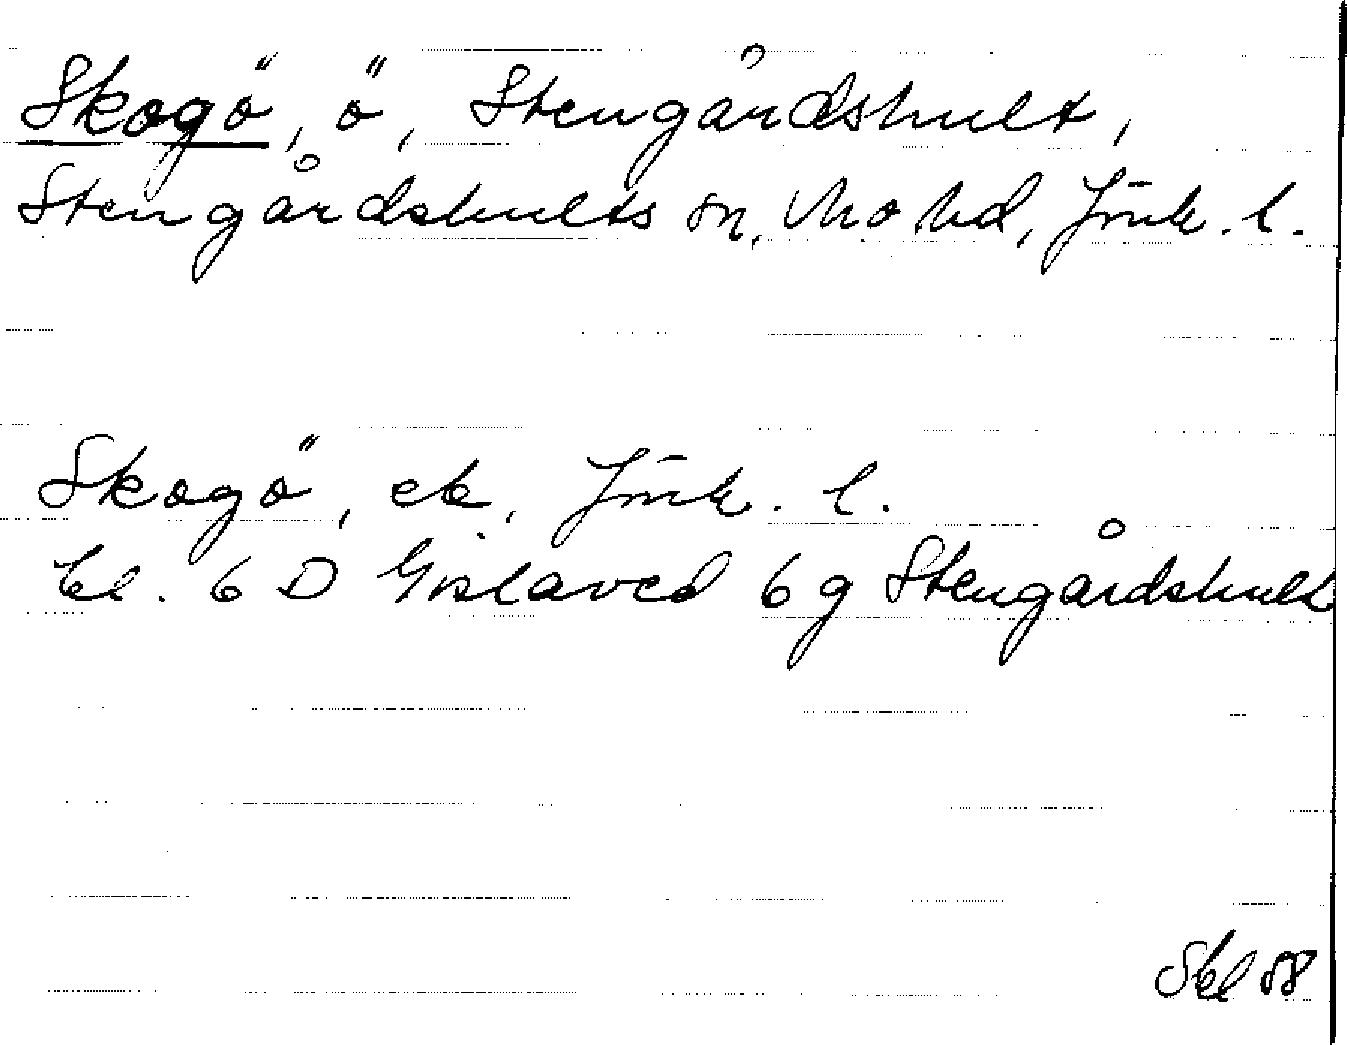 Skogö, ö, Stengårdshult,
Stengårdshults sn, Mo hd, Jönk. l.
Skogö, ek, Jönk. l.
bl. 6 D Gislaved 6 g Stengårdshult
Skl 88